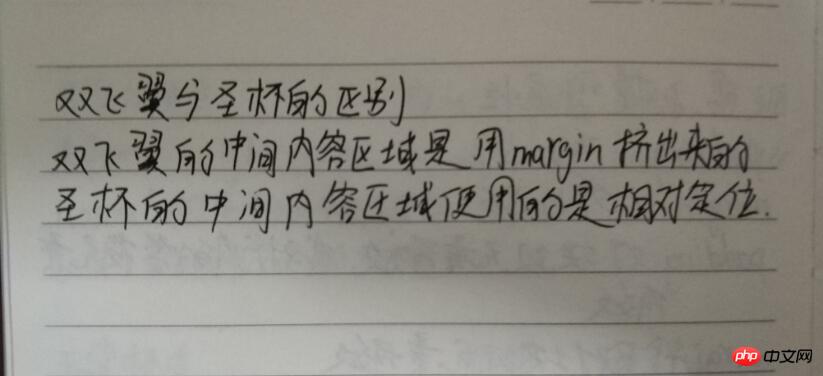 双飞翼与圣杯的区别
双飞翼的中间内容区域是用margin挤出来的
圣杯的中间内容区域使用的是相对定位.
php 中文网